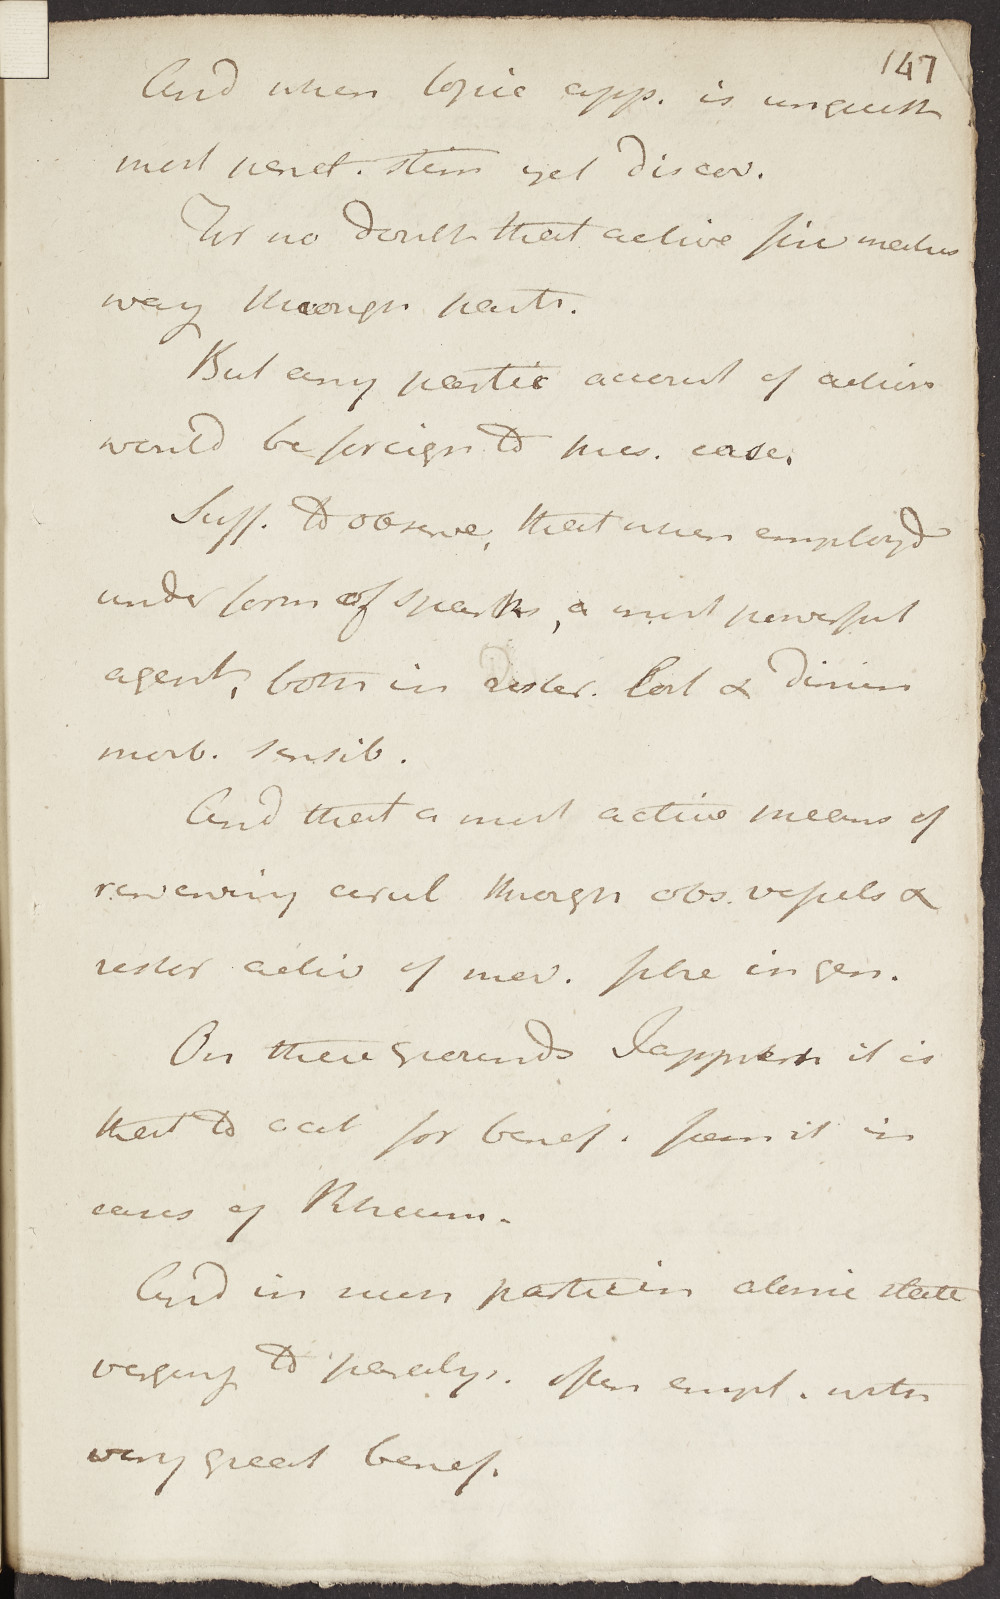 147
And when topic app. is unquest
most penet. stim yet discov.
Tis no doubt that active fire makes
way through parts.
But any partic account of action
would be foreign to pres. case.
Suff. to observe, that when employd
under form of sparks, a most powerful
agent, both in restor. lost & dimin
morb. sensib.
And that a most active means of
renewing circul through obs. vessels &
restor activ of mov. fibre in gen.
On these grounds I apprehen it is
that to act for benef. from it in
cases of Rheum.
And in when partic in atonic state
verging to paralys. often empl. with
very great benef.